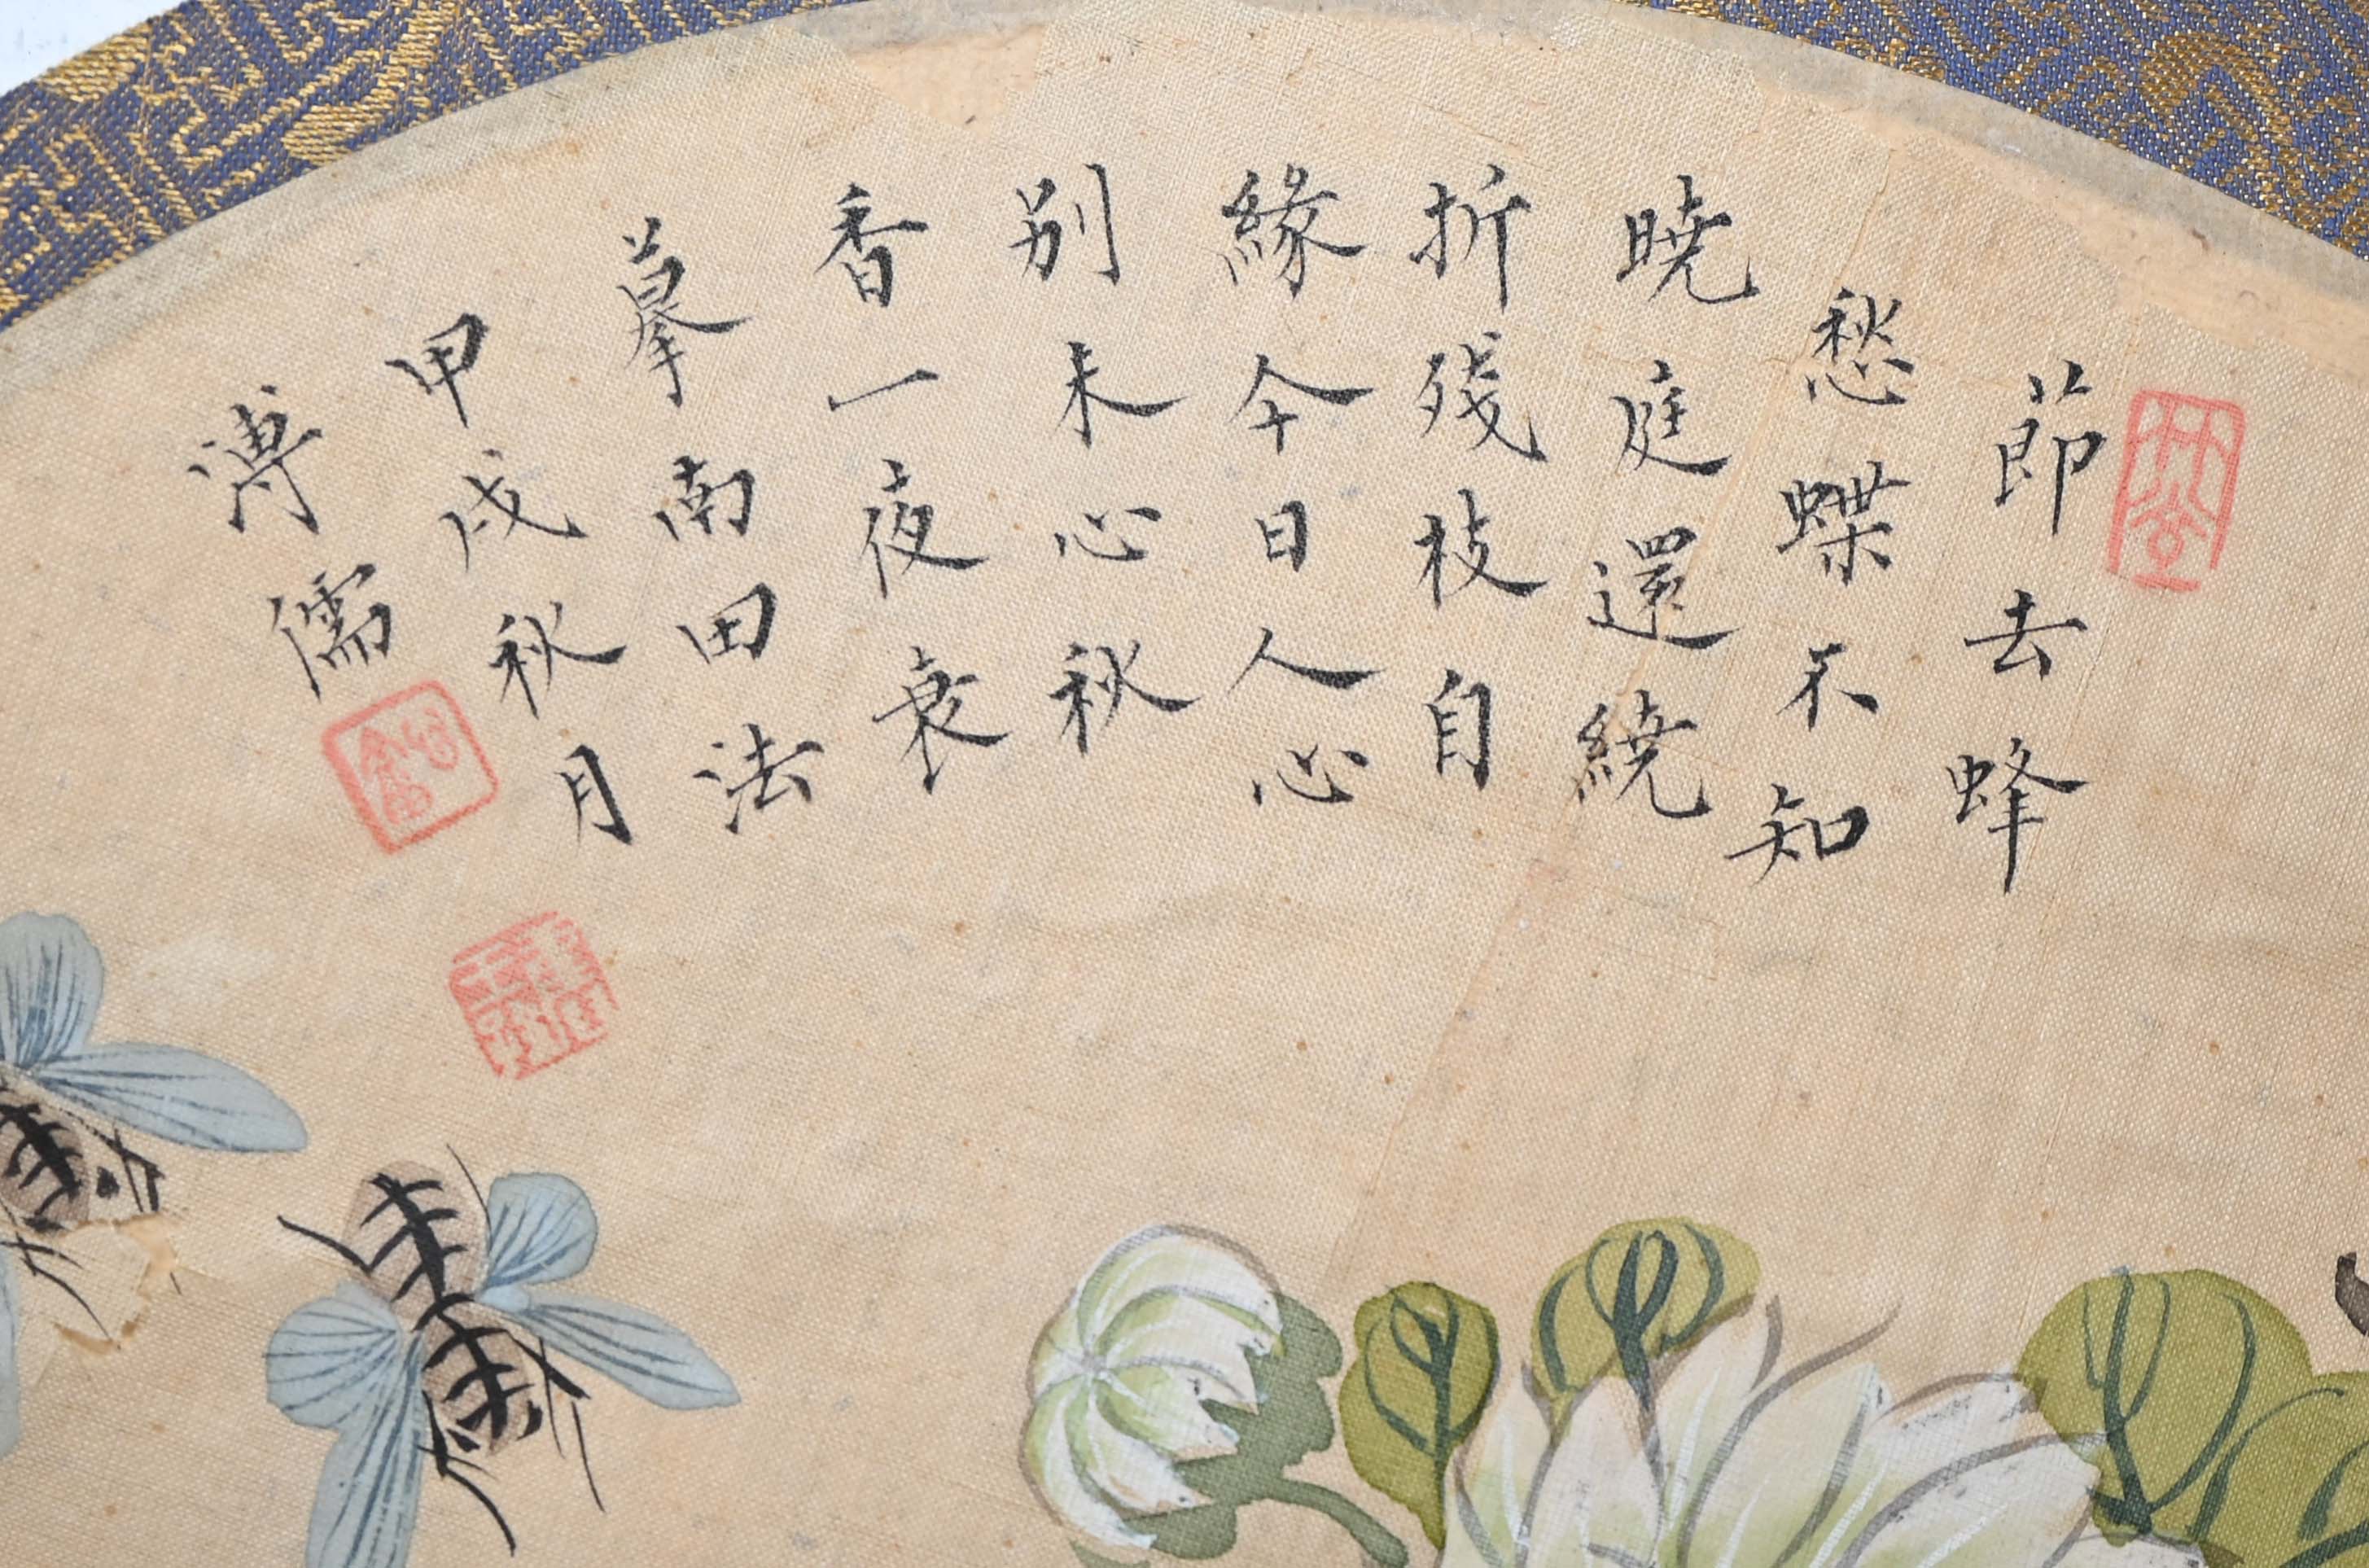 節去蜂
愁蝶不知
曉庭還繞
折殘枝自
緣今日人心
别未心秋
香一夜衰
摹南田法
甲戌秋月
溥儒